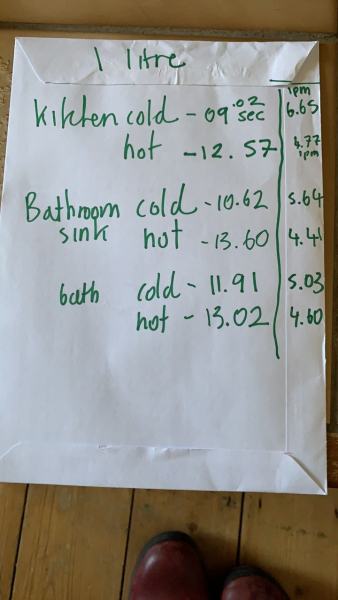 1 litre
lpm
Kitchen cold - 09.02 sec 6.65
hot - 12.57 4.77 lpm
Bathroom sink cold - 10.62 5.64
hot - 13.60 4.41
bath cold - 11.91 5.03
hot - 13.02 4.60